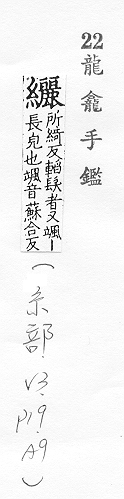 22龍龕手鑑
纚
所綺反韜髮者又颯丨
長皃也颯音蘇合反
(糸部.V3.
P19
A9)